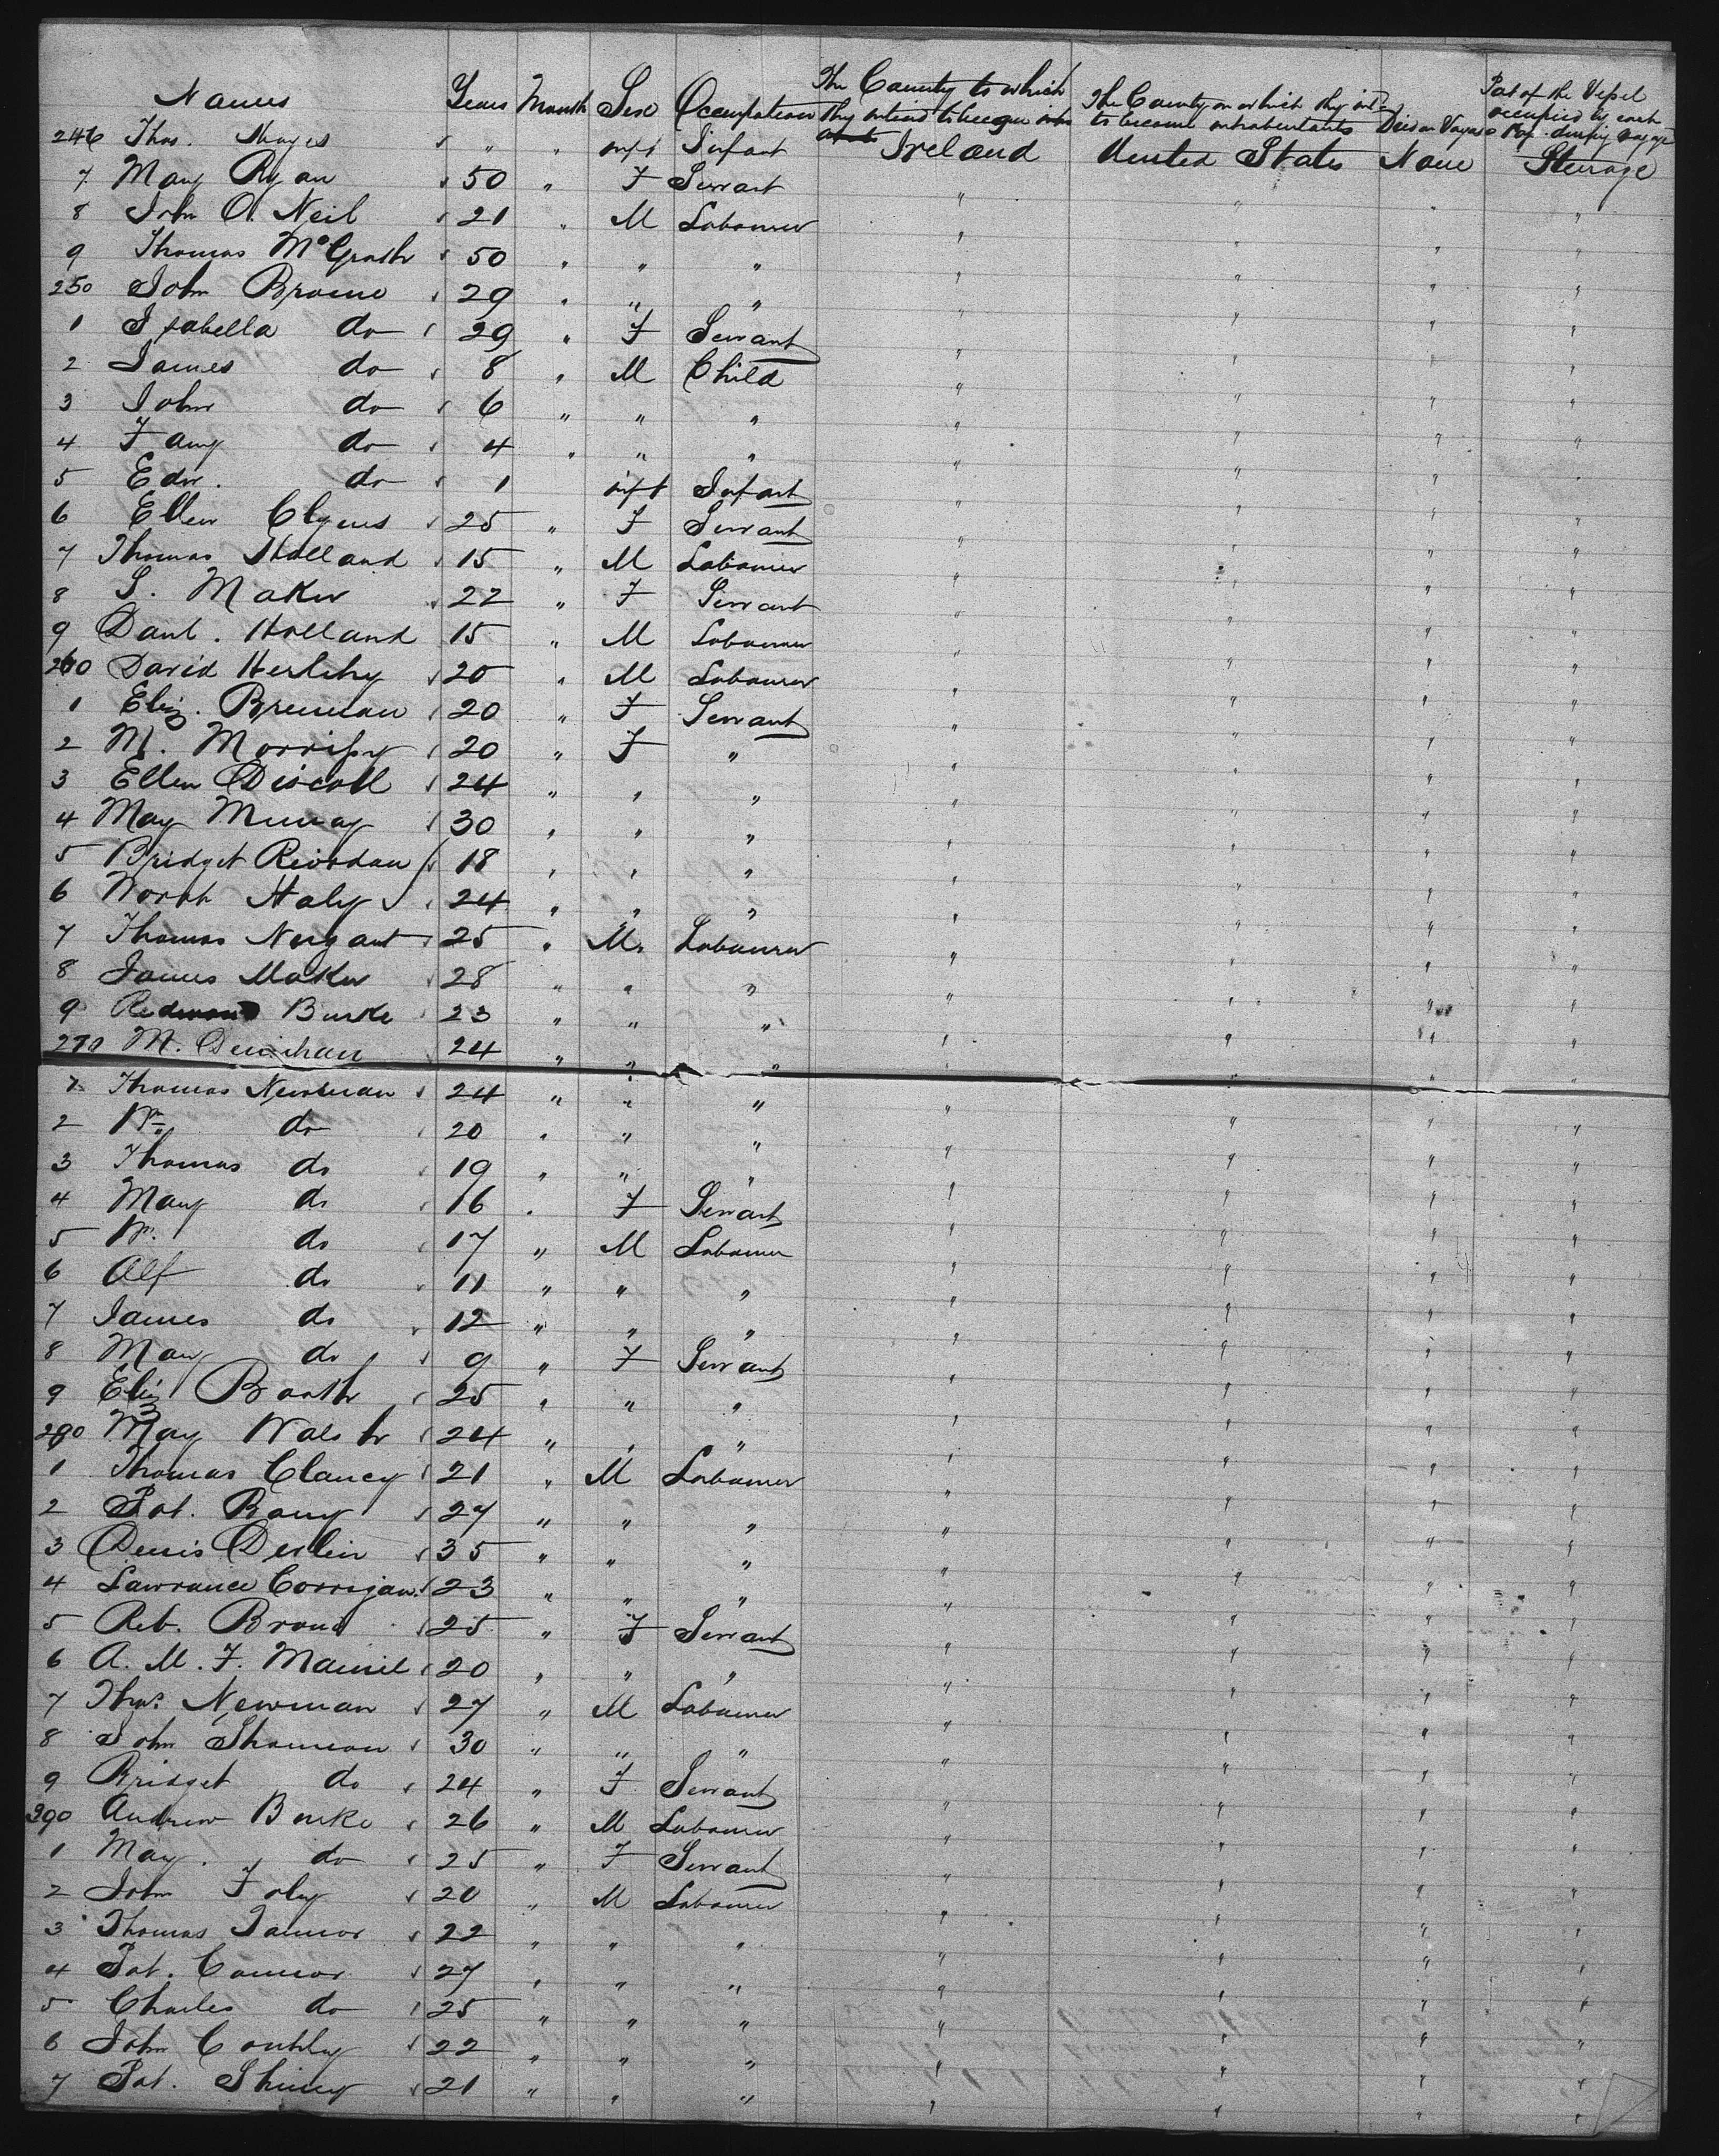 Names Years Month Sex Occupation The County to which they intend to become The County in which they int to become inhabitants Died on Voyage Part of the Vessel occupied by each during voyage
246 Thos. Hayes " " inft Infant Ireland United States None Steerage
7 Mary Ryan 50 " F Servant " " " "
8 John O Neil 21 " M Labourer " " " "
9 Thomas McGrath 50 " " " " " " "
250 John Browne 29 " " " " " " "
1 Isabella do 29 " F Servant " " " "
2 James do 8 " M Child " " " "
3 John do 6 " " " " " " "
4 Fany do 4 " " " " " " "
5 Edw. do 1 inft Infant " " " "
6 Ellen Clyens 25 " F Servant " " " "
7 Thomas Holland 15 " M Labourer " " " "
8 S. Maker 22 " F Servant " " " "
9 Danl. Holland 15 " M Labourer " " " "
260 David Herlihy 20 " M Labourer " " " "
1 Eliz. Brennan 20 " F Servant " " " "
2 M. Morrissy 20 " F " " " " "
3 Ellen Discoll 24 " " " " " " "
4 Mary Murray 30 " " " " " " "
5 Bridget Riordan 18 " " " " " " "
6 Norah Haly 24 " " " " " " "
7 Thomas Nugant 25 " M. Labourer " " " "
8 James Maker 28 " " " " " " "
9 Redmond Burke 23 " " " " " " "
270 M. Denihan 24 " " " " " " "
1 Thomas Newman 24 " " " " " " "
2 Wm do 20 " " " " " " "
3 Thomas do 19 " " " " " " "
4 Mary do 16 " F Servant " " " "
5 Wm. do 17 " M Labourer " " " "
6 Alf do 11 " " " " " " "
7 James do 12 " " " " " " "
8 Mary do 9 " F Servant " " " "
9 Eliz Booth 25 " " " " " " "
280 Mary Walsh 24 " " " " " " "
1 Thomas Clancy 21 " M Labourer " " " "
2 Pat. Rany 27 " " " " " " "
3 Denis Devlin 35 " " " " " " "
4 Lawrance Corrigan 23 " " " " " " "
5 Reb. Brown 25 " F Servant " " " "
6 A. M. F. 20 " " " " " " "
7 Thos. Newman 27 " M Labourer " " " "
8 John Shannon 30 " " " " " " "
9 Bridget do 24 " F Servant " " " "
390 Andrew Burke 26 " M Labourer " " " "
1 Mary. do 25 " F Servant " " " "
2 John Foly 20 " M Labourer " " " "
3 Thomas 22 " " " " " " "
4 Pat. Connor 27 " " " " " " "
5 Charles do 25 " " " " " " "
6 John 22 " " " " " " "
7 Pat. 21 " " " " " " "